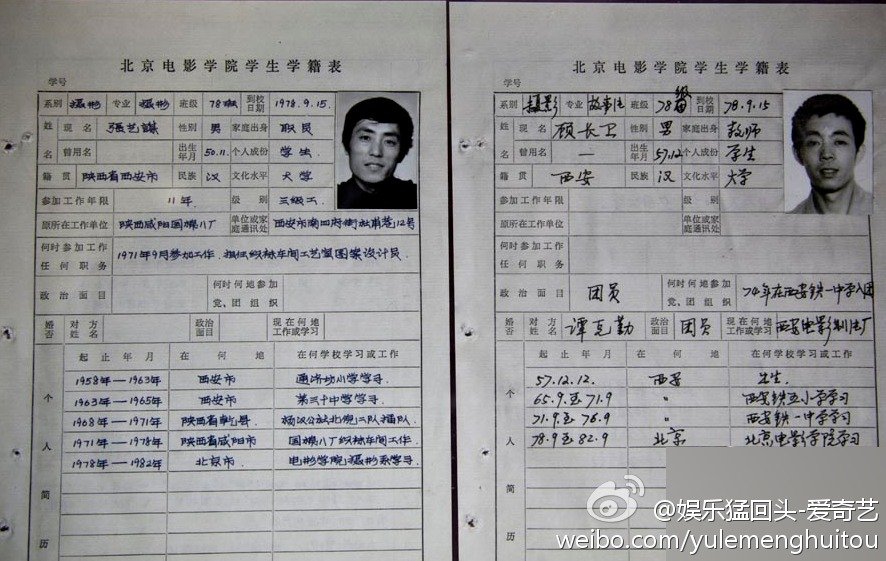 北京电影学院学生学籍表
学号
系别 摄影 专业 摄影 班级 78级 到校日期 1978.9.15.
姓名 现名 张艺谋 性别 男 家庭出身 职员
曾用名 出生年月 50.11. 个人成份 学生
籍贯 陕西省西安市 民族 汉 文化水平 大学
参加工作年限 11年 级别 三级工
原所在工作单位 陕西咸阳国棉八厂 单位或家庭通讯处 西安市南四府街社庙巷12号
何时参加工作任何职务 1971年9月参加工作.担任织袜车间工艺暨图案设计员.
政治面目 何时何地参加党、团组织
婚否 对方姓名 政治面目 现在何地工作或学习
个人简历 起止年月 在何地 在何学校学习或工作
1958年—1963年 西安市 通济坊小学学习
1963年—1965年 西安市 第三十中学学习
1968年—1971年 陕西省乾县 杨汉公社北倪二队插队
1971年—1978年 陕西省咸阳市 国棉八厂织袜车间工作
1978年—1982年 北京市 电影学院摄影系学习
北京电影学院学生学籍表
学号
系别 摄影 专业 故事片 班级 78级 到校日期 78.9.15
姓名 现名 顾长卫 性别 男 家庭出身 教师
曾用名 — 出生年月 57.12 个人成份 学生
籍贯 西安 民族 汉 文化水平 大学
参加工作年限 级别
原所在工作单位 单位或家庭通讯处
何时参加工作任何职务
政治面目 团员 何时何地参加党、团组织 74年在西安铁一中学入团
婚否 对方姓名 谭克勤 政治面目 团员 现在何地工作或学习 西安电影制片厂
个人简历 起止年月 在何地 在何学校学习或工作
57.12.12. 西安 出生
65.9至71.9 〃 西安铁五小学学习
71.9至76.9 〃 西安铁一中学学习
78.9至82.9 北京 北京电影学院学习
@娱乐猛回头-爱奇艺
weibo.com/yulemenghuitou